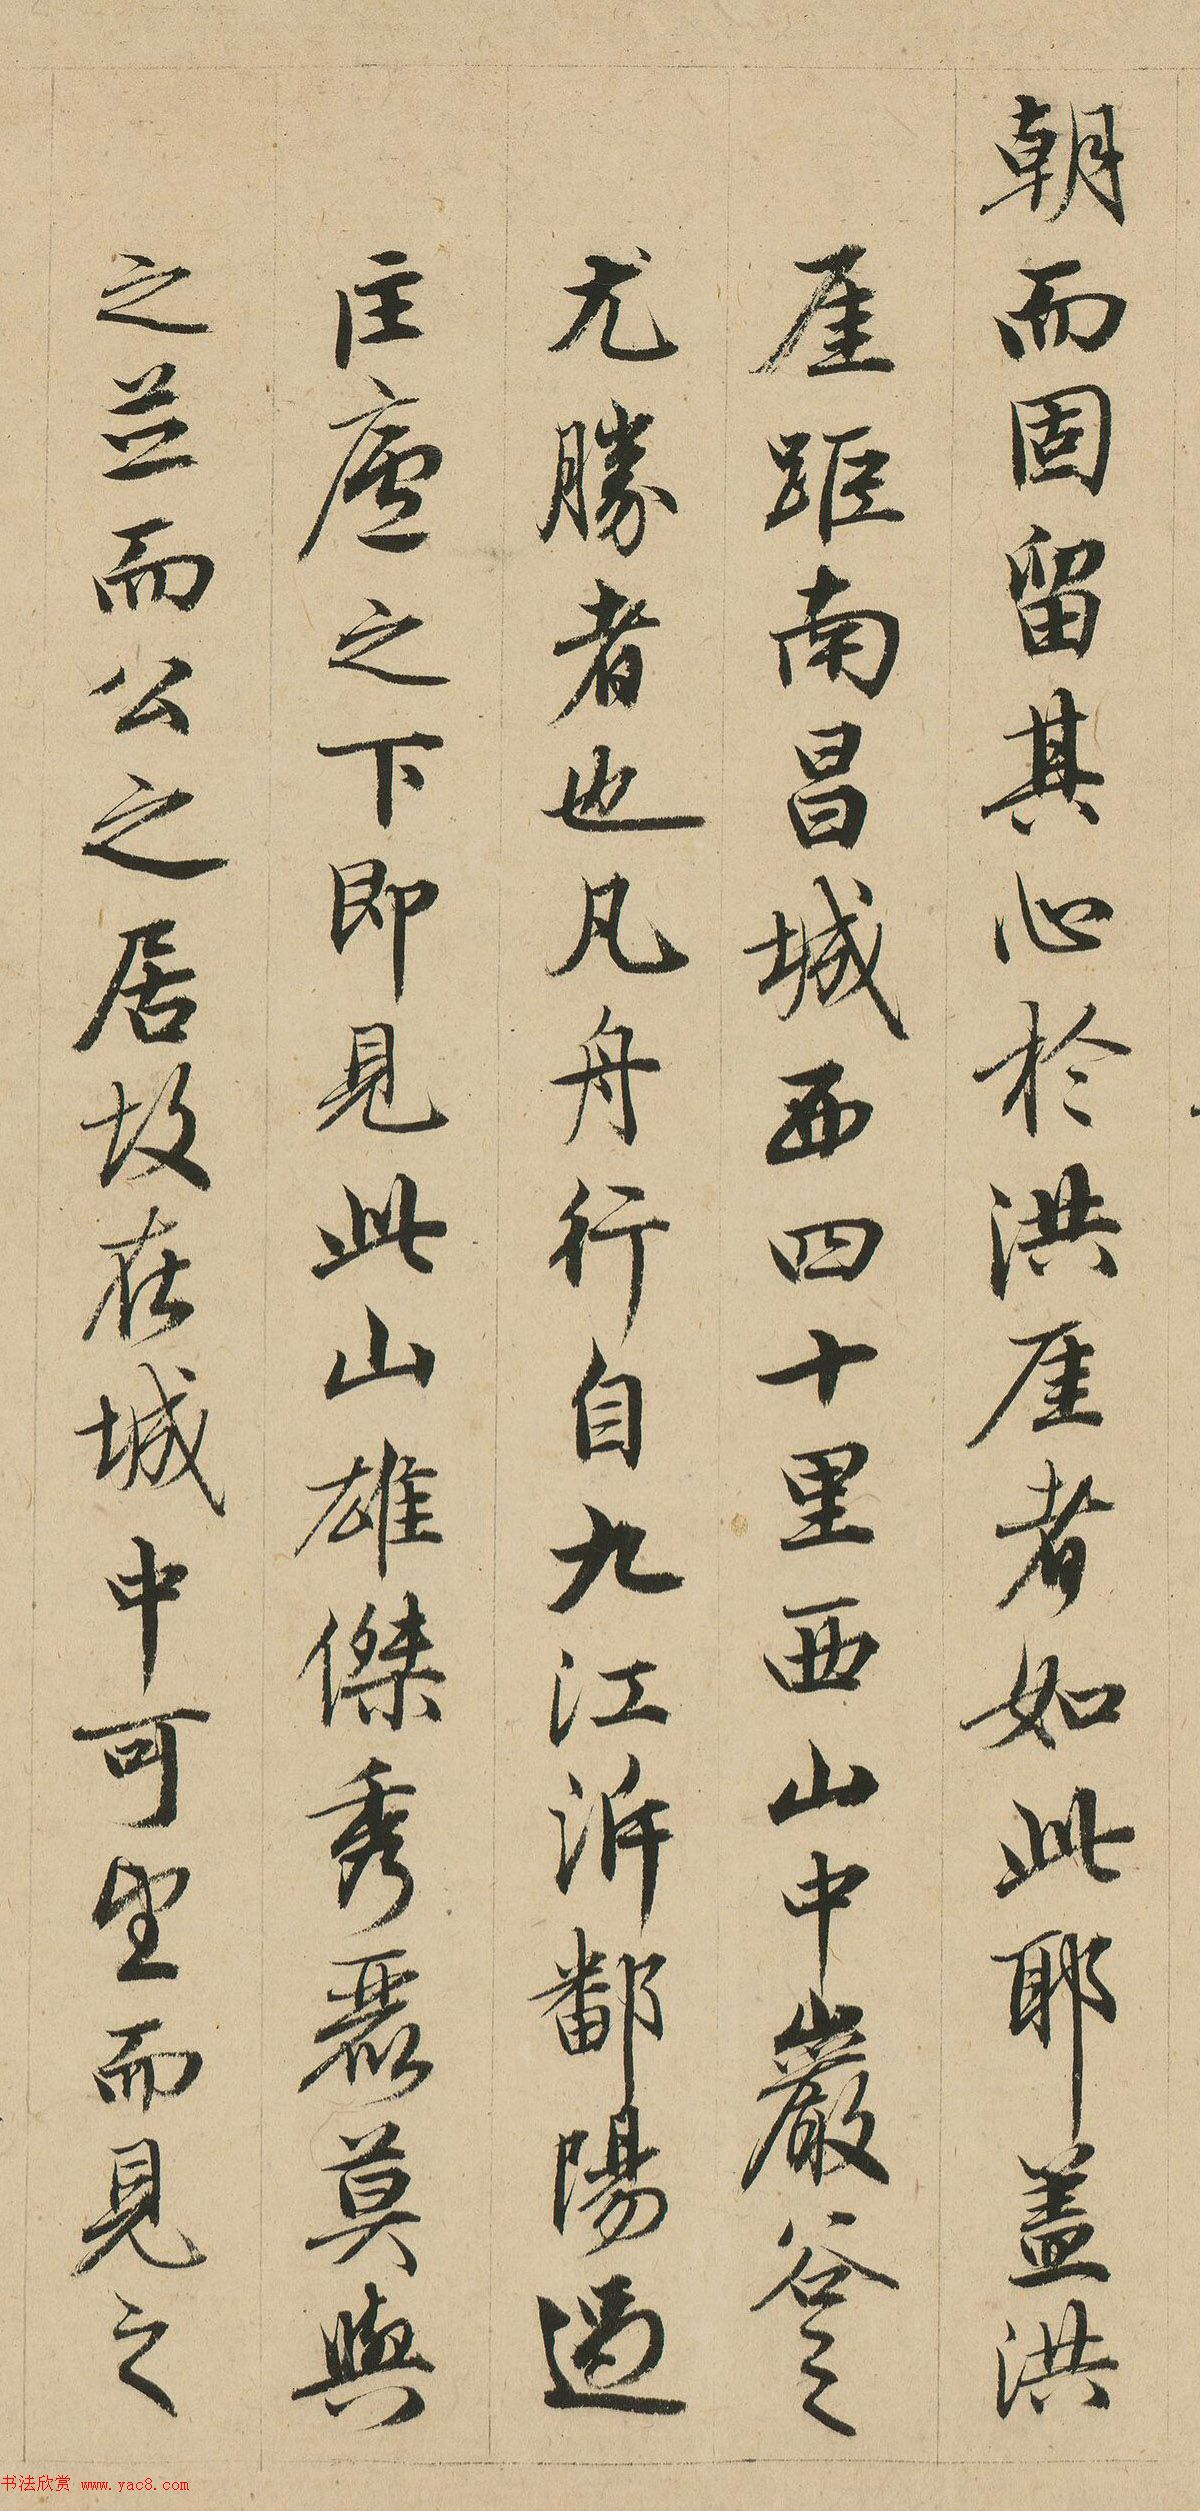 朝而固留其心於洪厓者如此耶盖洪
厓距南昌城西四十里西山中巖谷之
尤勝者也凡舟行自九江泝鄱陽過
匡廬之下即見此山雄傑秀麗莫與
之並而公之居故在城中可望而見之
书法欣赏 www.yac8.com